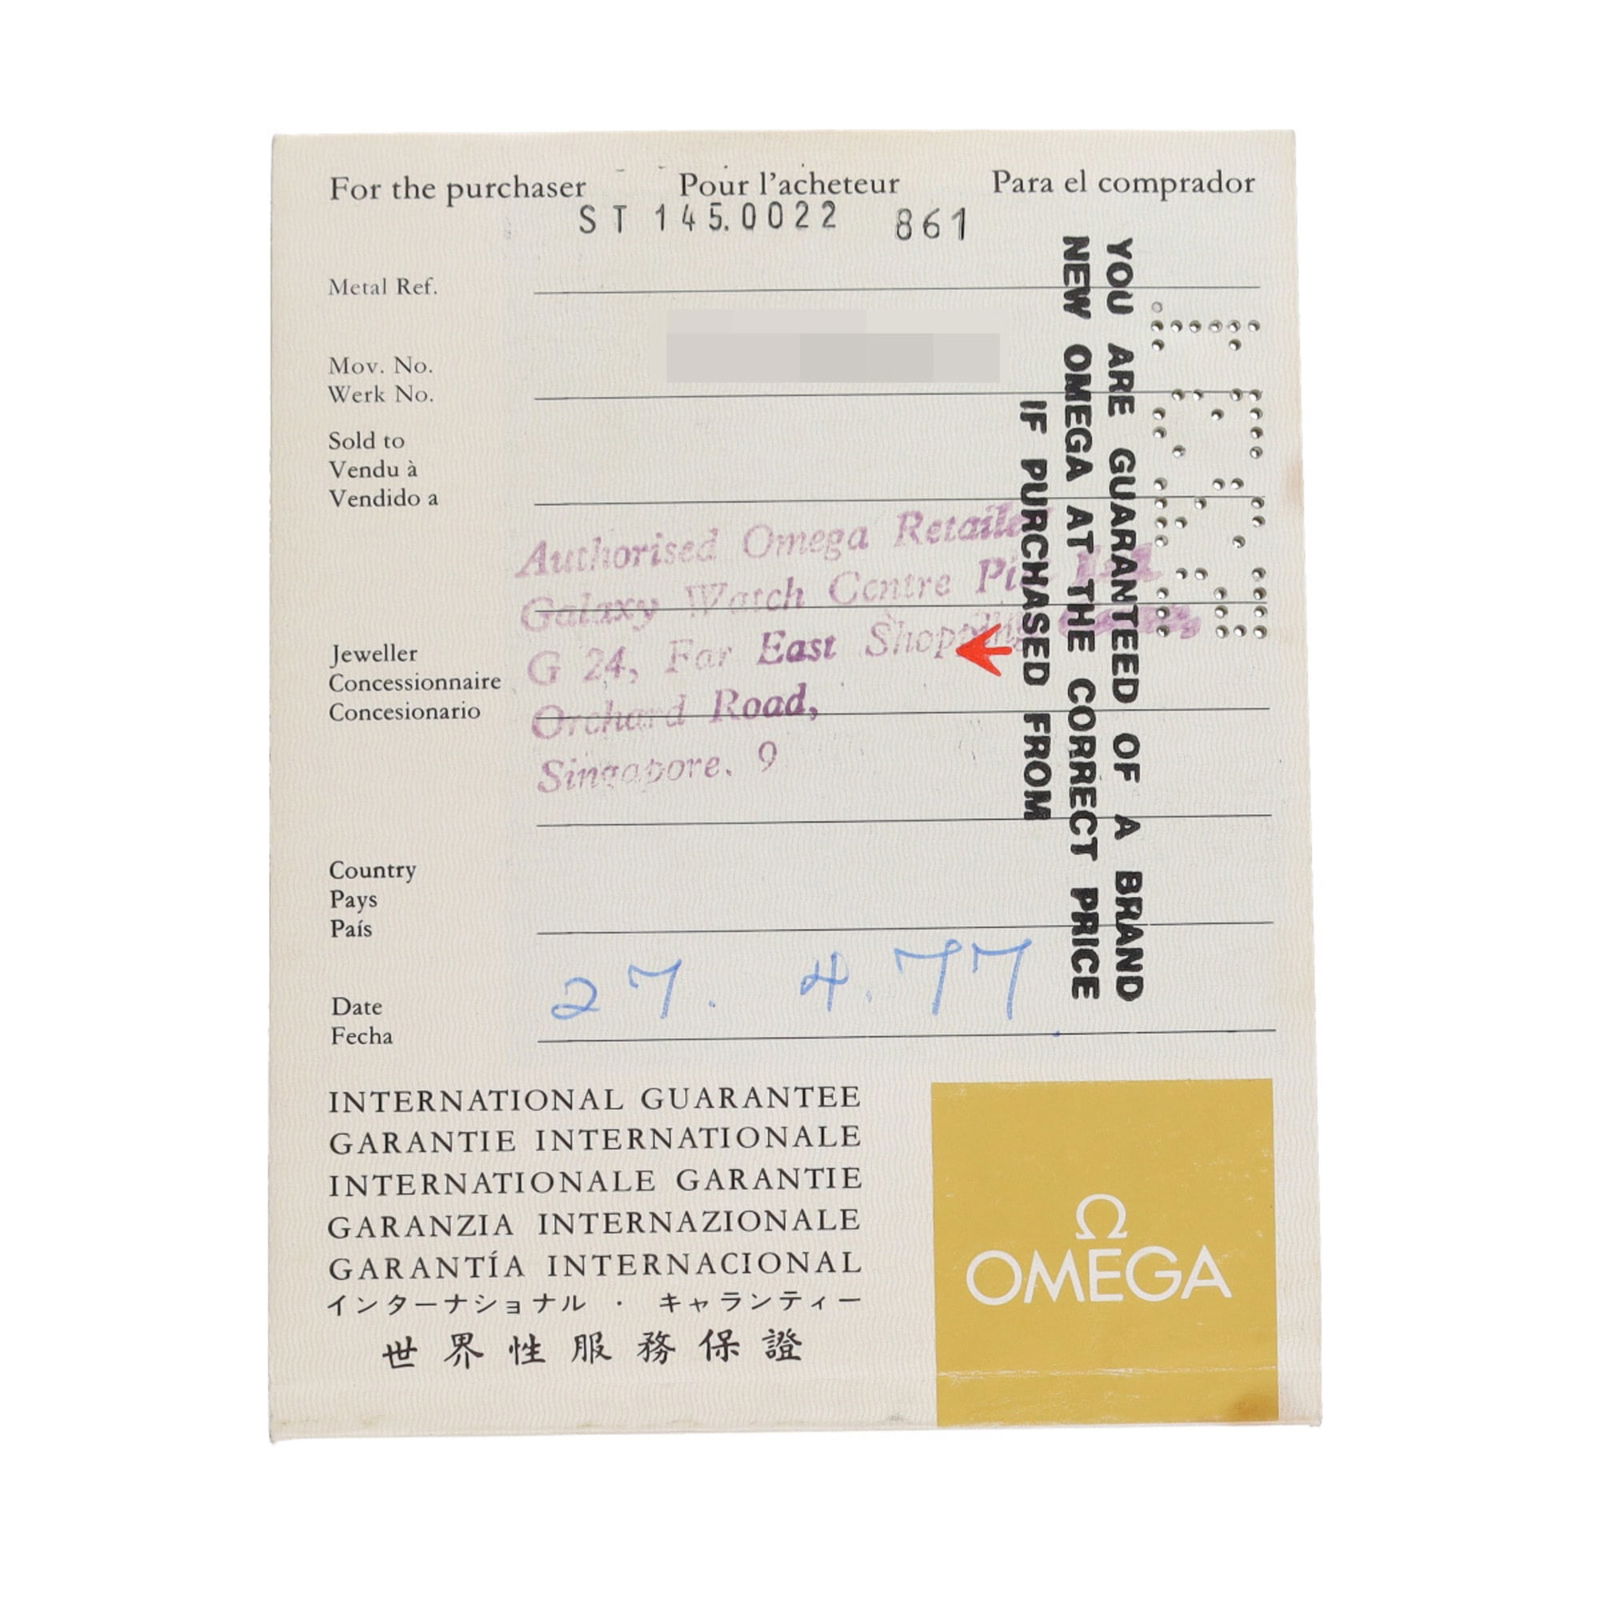 For the purchaser Pour l'acheteur Para el comprador
ST 145.0022 861
Metal Ref.
Mov. No.
Werk No.
Sold to
Vendu à
Vendido a
Authorised Omega Retailer
Galaxy Watch Centre
G 24, Far East Shopping
Orchard Road,
Singapore. 9
Jeweller
Concessionnaire
Concesionario
YOU ARE GUARANTEED OF A BRAND
NEW OMEGA AT THE CORRECT PRICE
IF PURCHASED FROM
Country
Pays
País
27. 4. 77
Date
Fecha
INTERNATIONAL GUARANTEE
GARANTIE INTERNATIONALE
INTERNATIONALE GARANTIE
GARANZIA INTERNAZIONALE
GARANTÍA INTERNACIONAL
インターナショナル · キャランティー
世界性服務保證
Ω
OMEGA